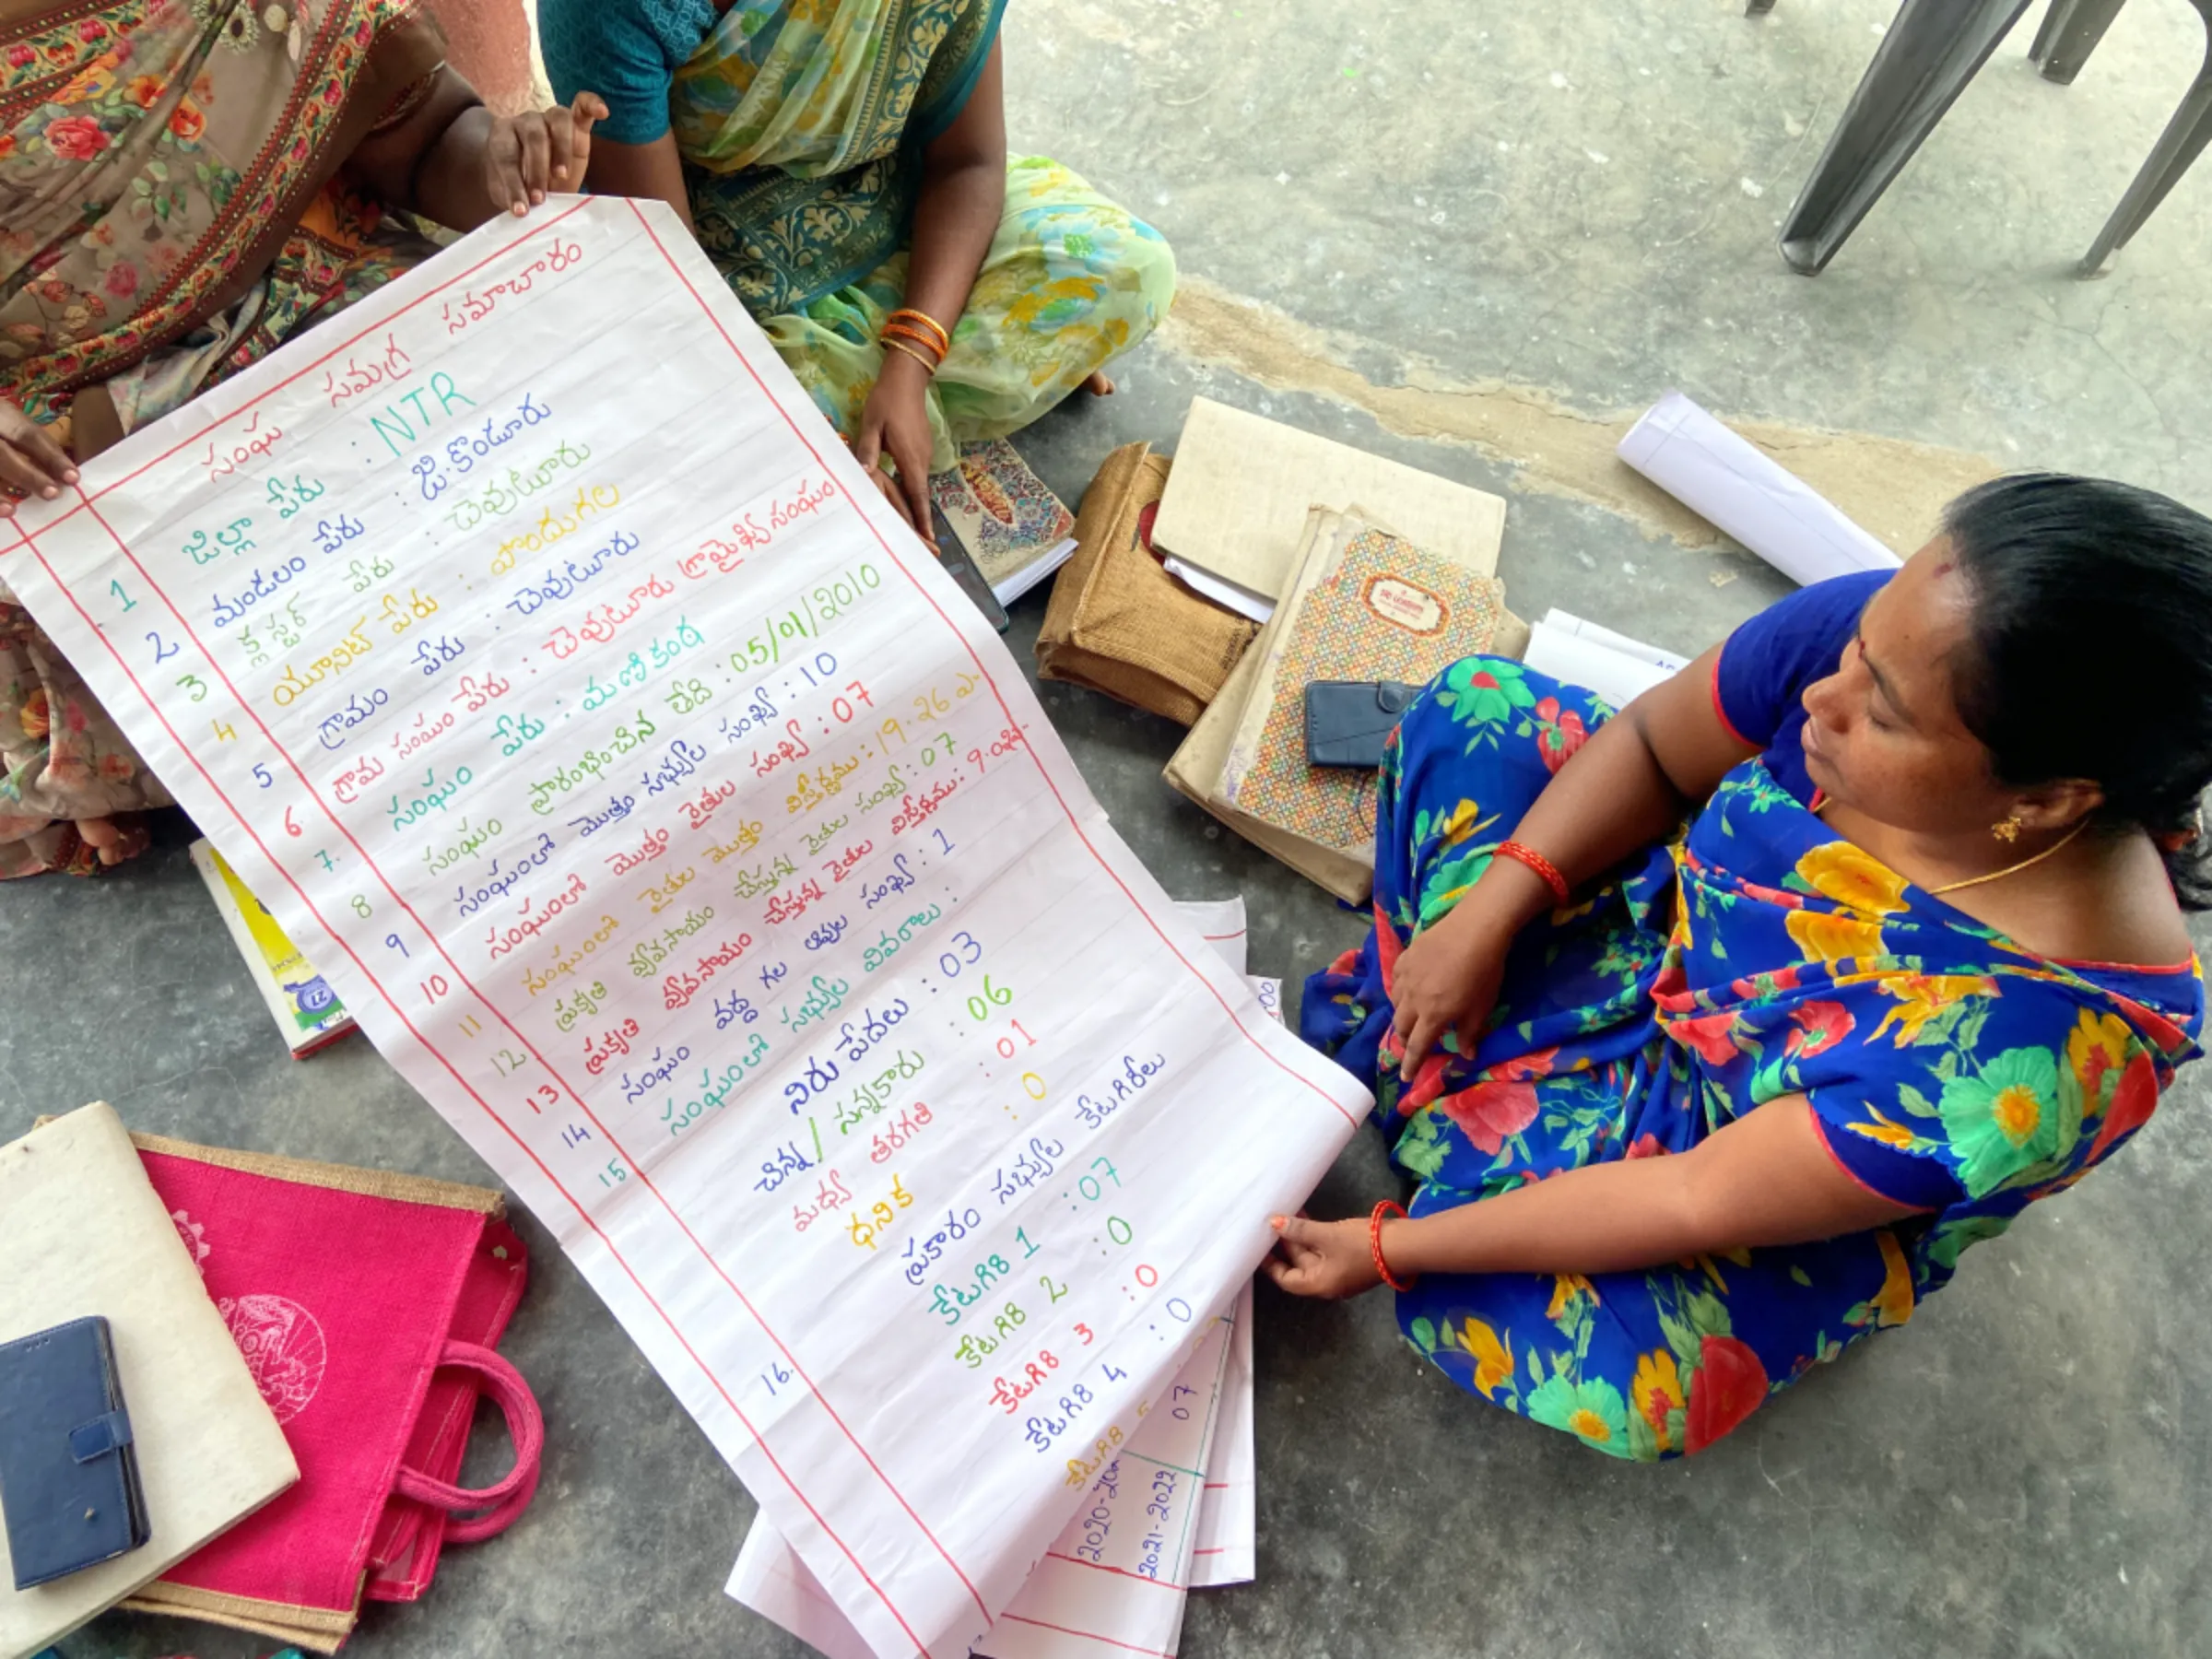 సంఘ సమగ్ర సమాచారం
1 జిల్లా పేరు : NTR
2 మండలం పేరు : జి.కొండూరు
3 క్లస్టర్ పేరు : చెవుటూరు
4 యూనిట్ పేరు : పొందుగల
5 గ్రామం పేరు : చెవుటూరు
6. గ్రామ సంఘం పేరు : చెవుటూరు గ్రామైఖ్య సంఘం
7. సంఘం పేరు : మణికంఠ
8 సంఘం ప్రారంభించిన తేది : 05/01/2010
9 సంఘంలో మొత్తం సభ్యుల సంఖ్య : 10
10 సంఘంలో మొత్తం రైతుల సంఖ్య : 07
11 సంఘంలో రైతుల మొత్తం విస్తీర్ణము : 19.26 ఎ
12. ప్రకృతి వ్యవసాయం చేస్తున్న రైతుల సంఖ్య : 07
13 ప్రకృతి వ్యవసాయం చేస్తున్న రైతుల విస్తీర్ణము :
14 సంఘం వద్ద గల ఆవుల సంఖ్య : 1
15 సంఘంలో సభ్యుల వివరాలు :
నిరుపేదలు : 03
చిన్న/సన్నకారు : 06
మధ్య తరగతి : 01
ధనిక : 0
16. ప్రకారం సభ్యుల కేటగిరీలు
కేటగిరి 1 : 07
కేటగిరి 2 : 0
కేటగిరి 3 : 0
కేటగిరి 4 : 0
కేటగిరి
2021-2022 07
27